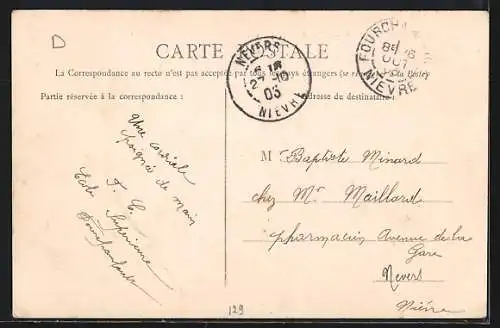 D
CARTE POSTALE
La Correspondance au recto n'est pas acceptée par tous les pays étrangers (se
Partie réservée à la correspondance :
Adresse du destinataire :
NEVERS
2 -10
03
NIEVRE
FOURCH
8
OCT
NIEVRE
Une cordiale
poignée de main
F. C.
Ecole Supérieure
M Baptiste Minard
chez Mr Maillard
pharmacien Avenue de la
Gare
Nevers
Nièvre
129